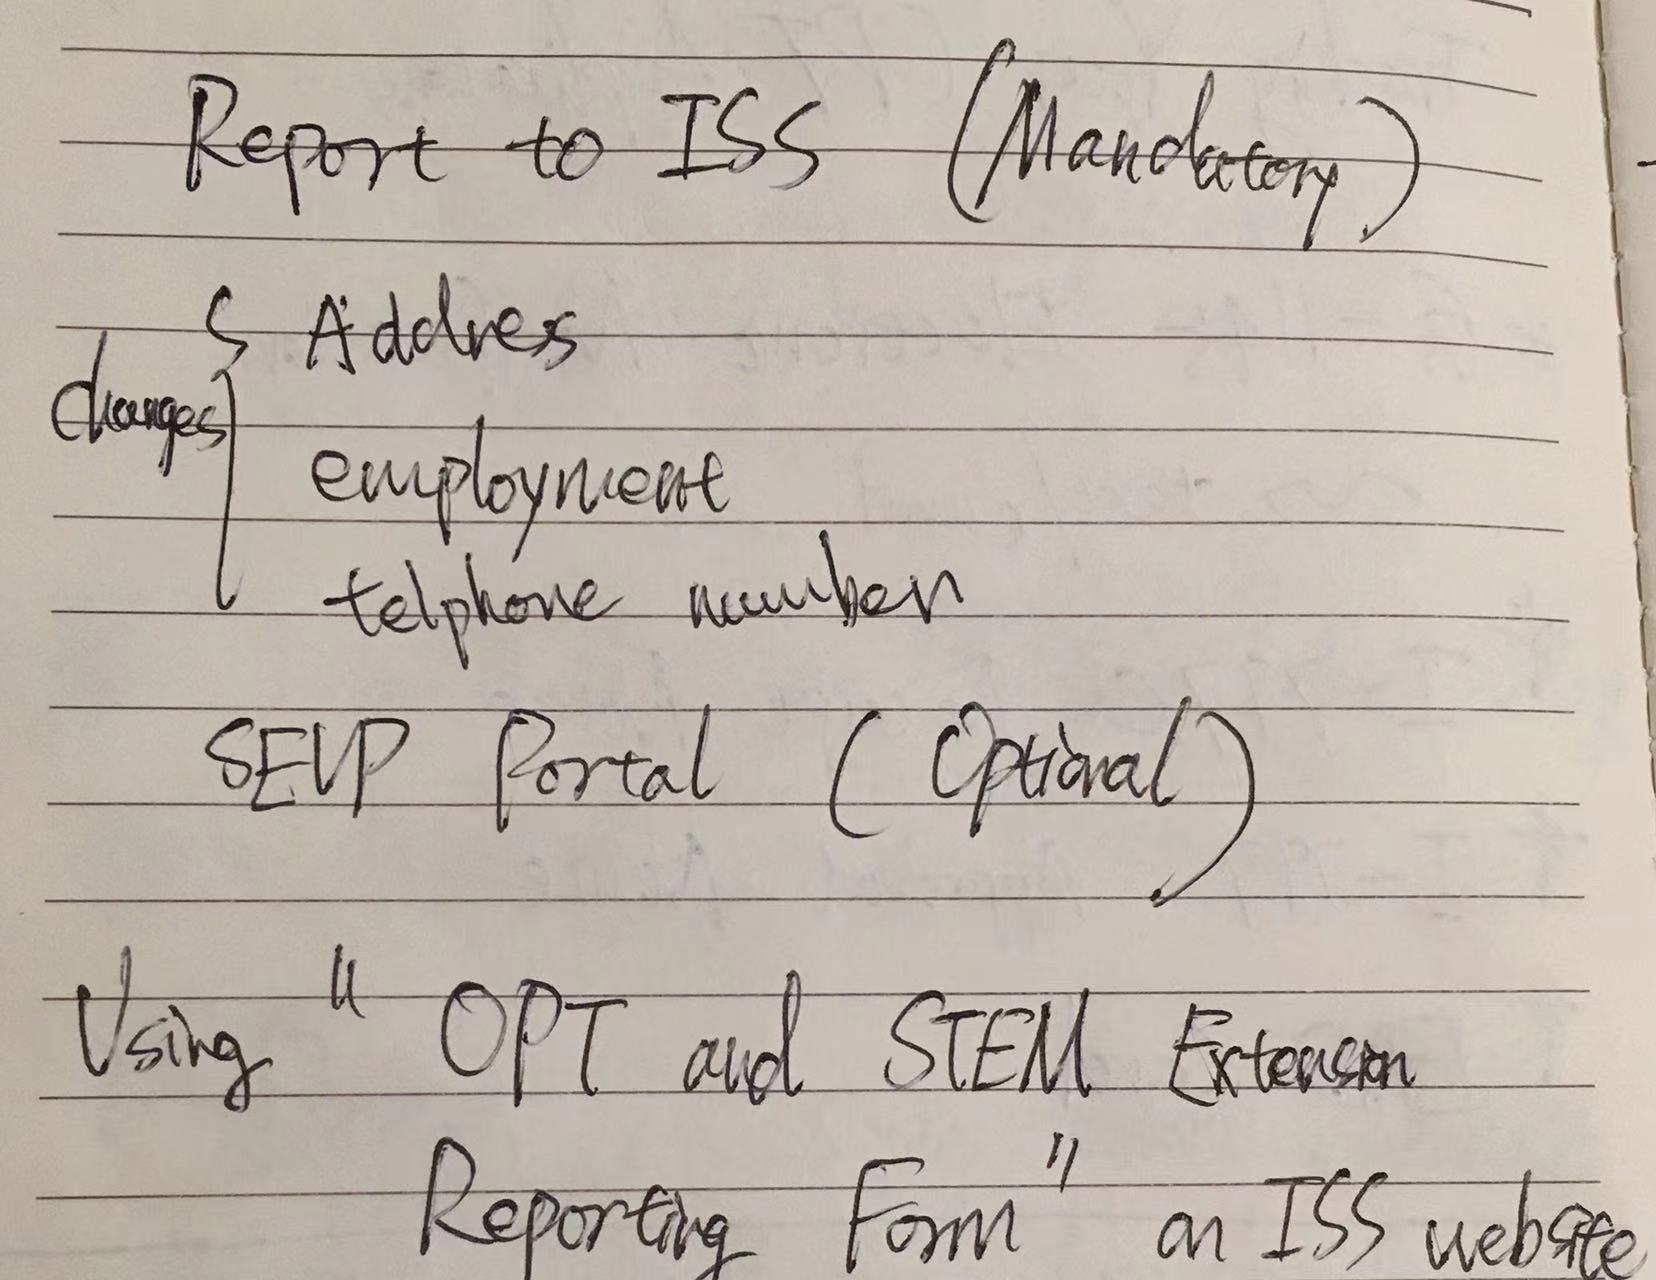 Report to ISS (Mandatory)
Address
changes
employment
telphone number
SEVP Portal (Optional)
Using " OPT and STEM Extension
Reporting Form" on ISS website